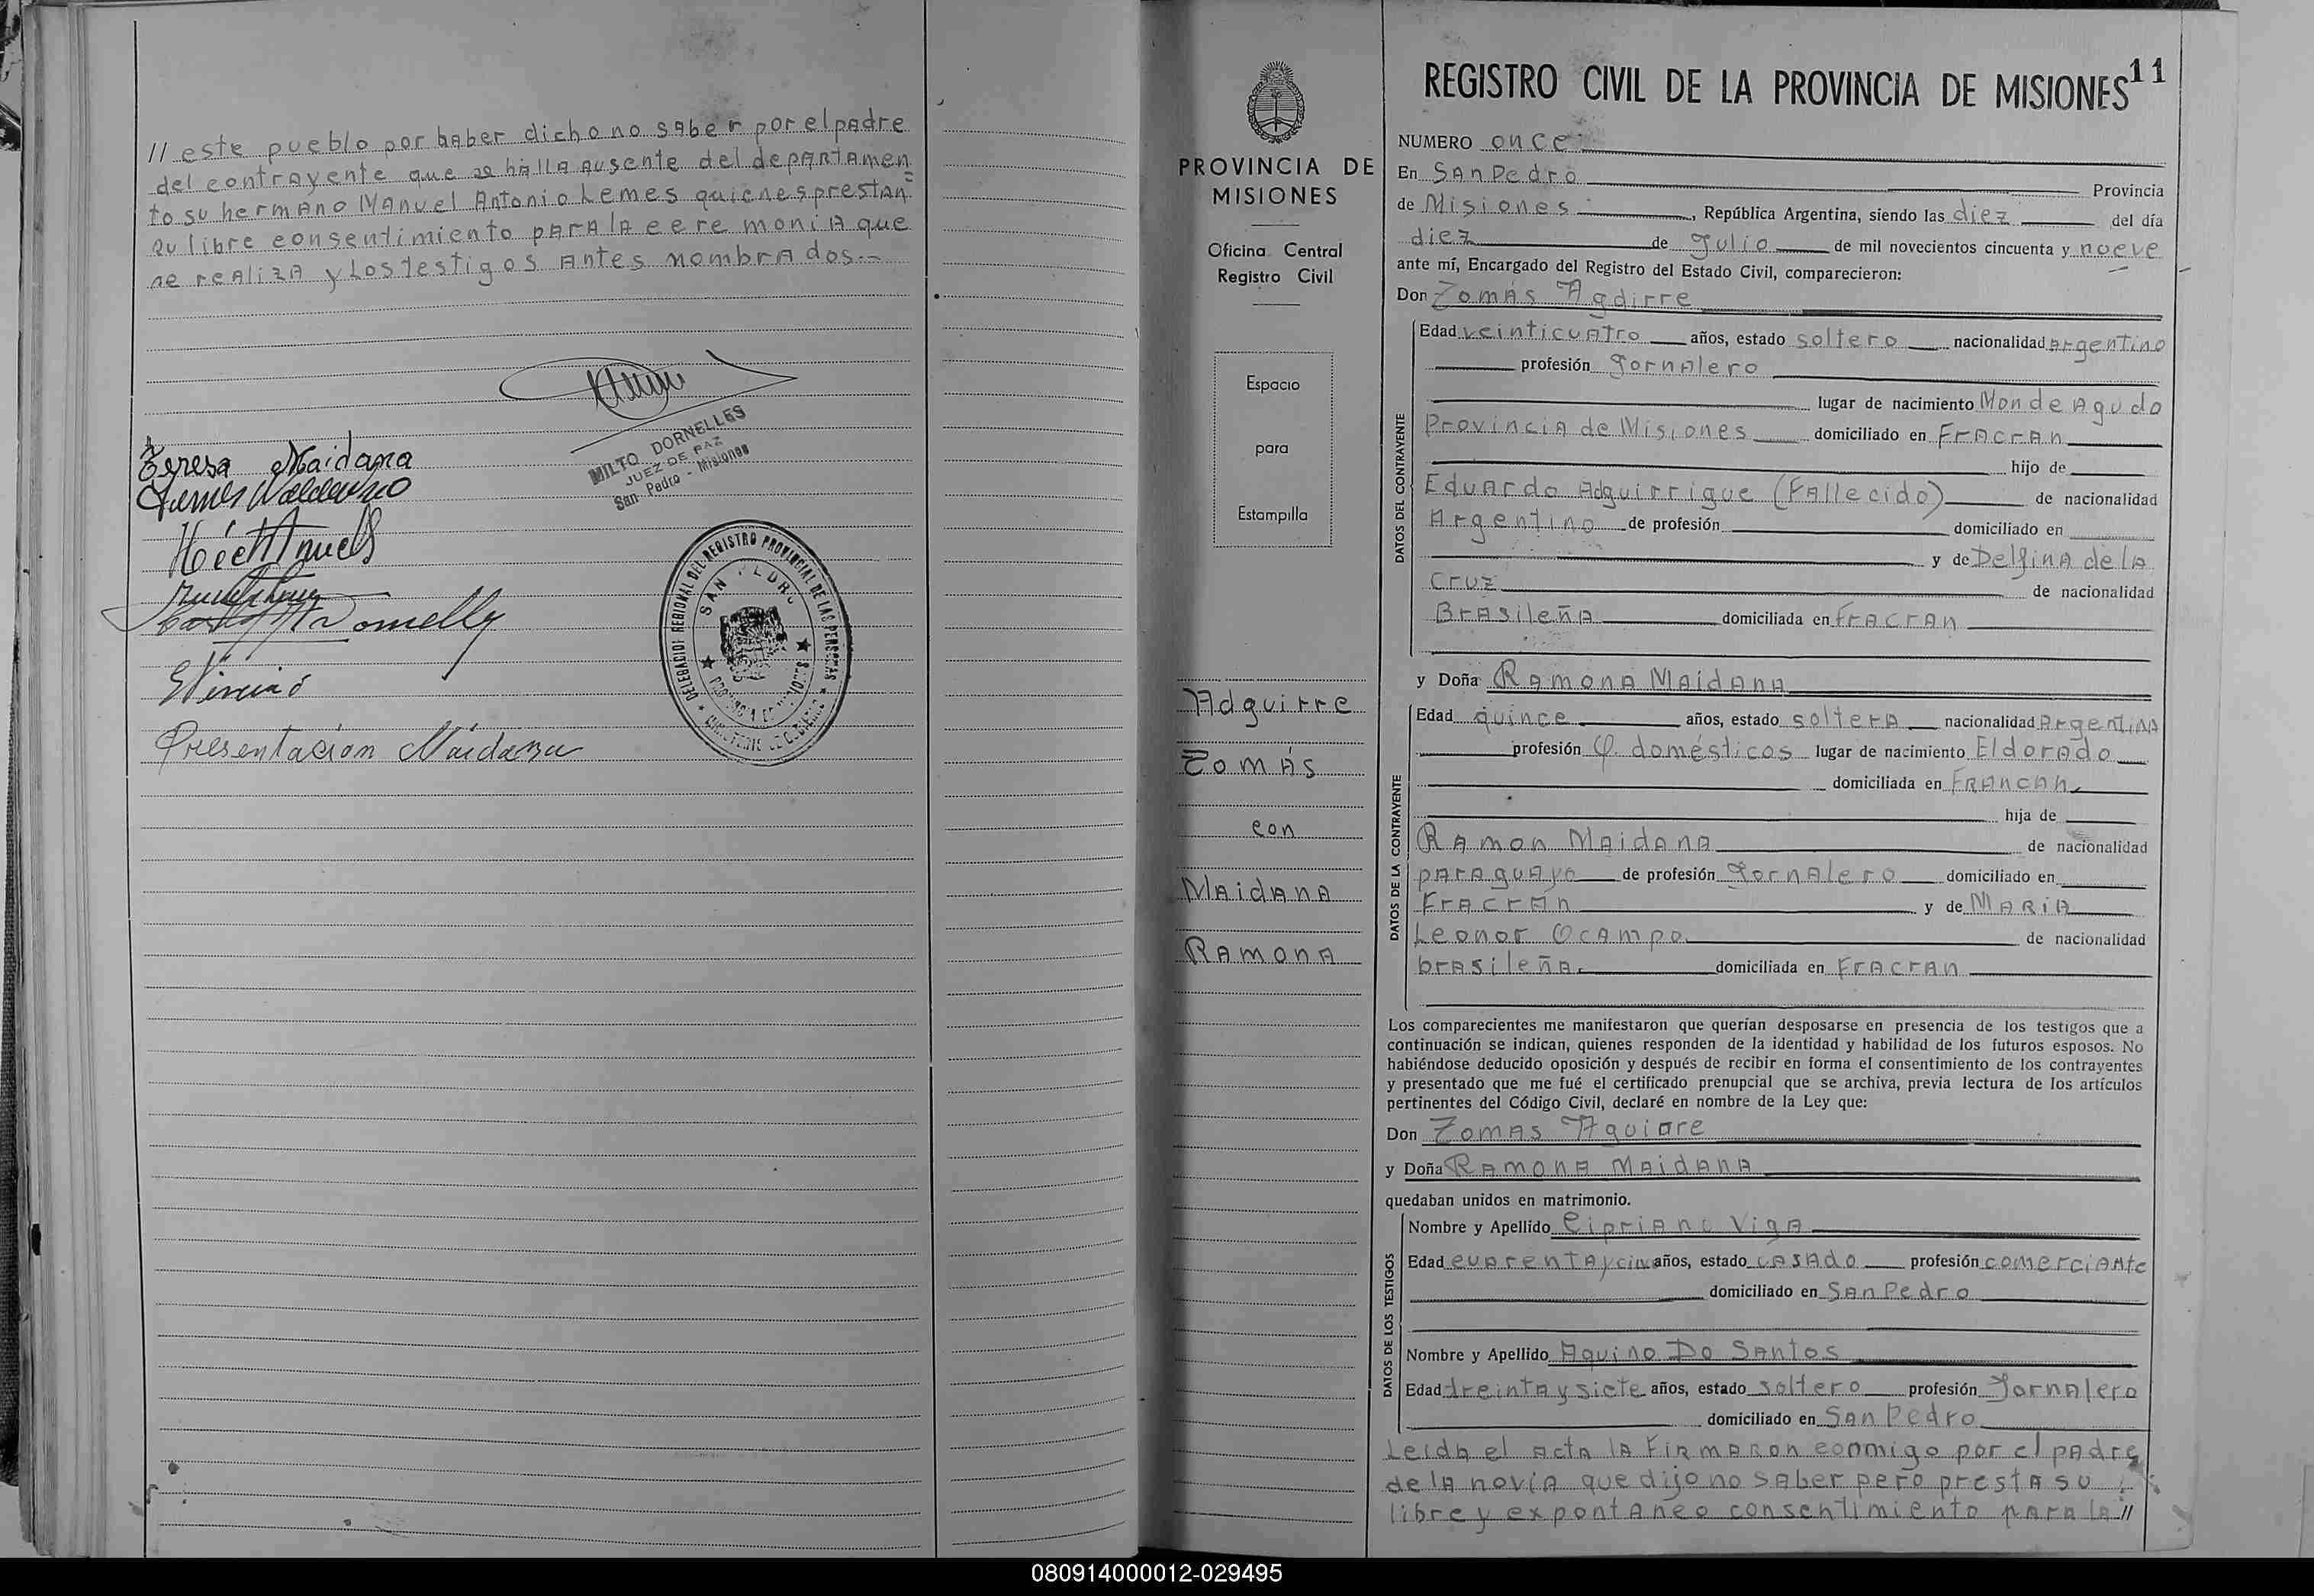 // este pueblo por haber dicho no saber por el padre
del contrayente que se halla ausente del departamen
to su hermano Manuel Antonio Lemes quienes prestan=
su libre consentimiento para la ceremonia que
se realiza y los testigos antes nombrados.-
MILTO DORNELLES
JUEZ DE PAZ
San Pedro - Misiones
Teresa Maidana
DELEGACION REGIONAL DEL REGISTRO PROVINCIAL DE LAS PERSONAS
SAN PEDRO
Presentacion Maidana
PROVINCIA DE
MISIONES
Oficina Central
Registro Civil
Espacio
para
Estampilla
Adguirre
Tomás
con
Maidana
Ramona
REGISTRO CIVIL DE LA PROVINCIA DE MISIONES 11
NUMERO once
En San Pedro Provincia
de Misiones, República Argentina, siendo las diez del día
diez de Julio de mil novecientos cincuenta y nueve
ante mí, Encargado del Registro del Estado Civil, comparecieron:
Don Tomás Agdirre
DATOS DEL CONTRAYENTE
Edad veinticuatro años, estado soltero nacionalidad argentino
profesión Jornalero
lugar de nacimiento Monde Agudo
Provincia de Misiones domiciliado en Fracran
hijo de
Eduardo Adguirrigue (Fallecido) de nacionalidad
Argentino de profesión domiciliado en
y de Delfina de la
Cruz de nacionalidad
Brasileña domiciliada en Fracran
y Doña Ramona Maidana
DATOS DE LA CONTRAYENTE
Edad quince años, estado soltera nacionalidad Argentina
profesión Q. domésticos lugar de nacimiento Eldorado
domiciliada en Francan
hija de
Ramon Maidana de nacionalidad
paraguayo de profesión Jornalero domiciliado en
Fracrán y de Maria
Leonor Ocampo de nacionalidad
brasileña. domiciliada en Fracran
Los comparecientes me manifestaron que querían desposarse en presencia de los testigos que a
continuación se indican, quienes responden de la identidad y habilidad de los futuros esposos. No
habiéndose deducido oposición y después de recibir en forma el consentimiento de los contrayentes
y presentado que me fué el certificado prenupcial que se archiva, previa lectura de los artículos
pertinentes del Código Civil, declaré en nombre de la Ley que:
Don Tomas
y Doña Ramona Maidana
quedaban unidos en matrimonio.
DATOS DE LOS TESTIGOS
Nombre y Apellido Cipriano Viga
Edad cuarentaycin años, estado casado profesión comerciante
domiciliado en San Pedro
Nombre y Apellido Aquino Do Santos
Edad treinta y siete años, estado soltero profesión Jornalero
domiciliado en San Pedro
Leida el acta la firmaron conmigo por el padre
de la novia que dijo no saber pero presta su
libre y expontaneo consentimiento para la //
080914000012-029495